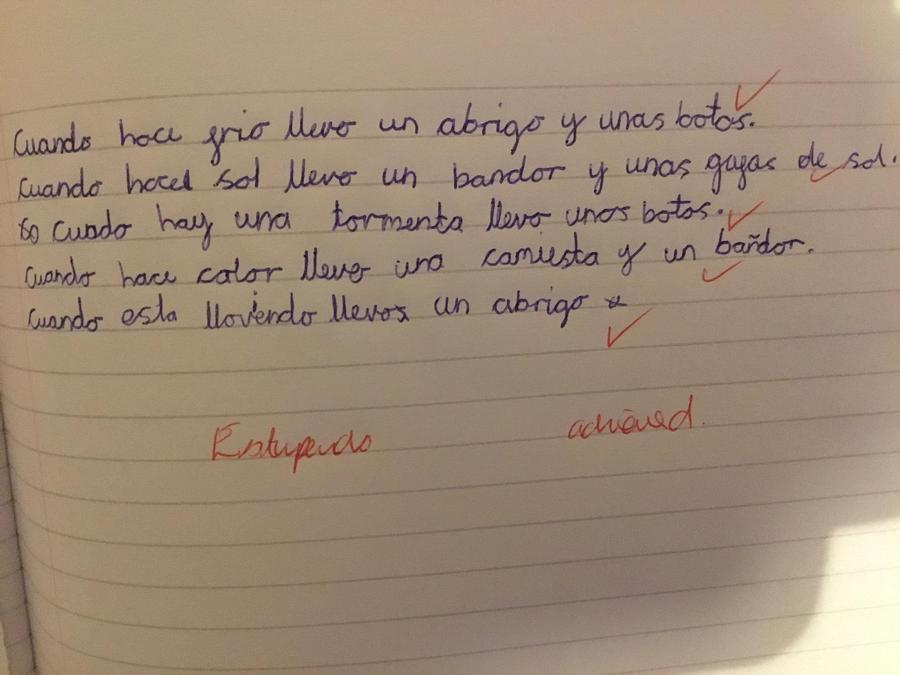 Cuando hace grio llevo un abrigo y unas botas.
Cuando hacel sol llevo un bandor y unas gagas de sol.
so cuado hay una tormenta llevo unas botas.
Cuando hace calor llevo una camiesta y un bañdor.
Cuando esta lloviendo llevos un abrigo
Estupendo achieved.